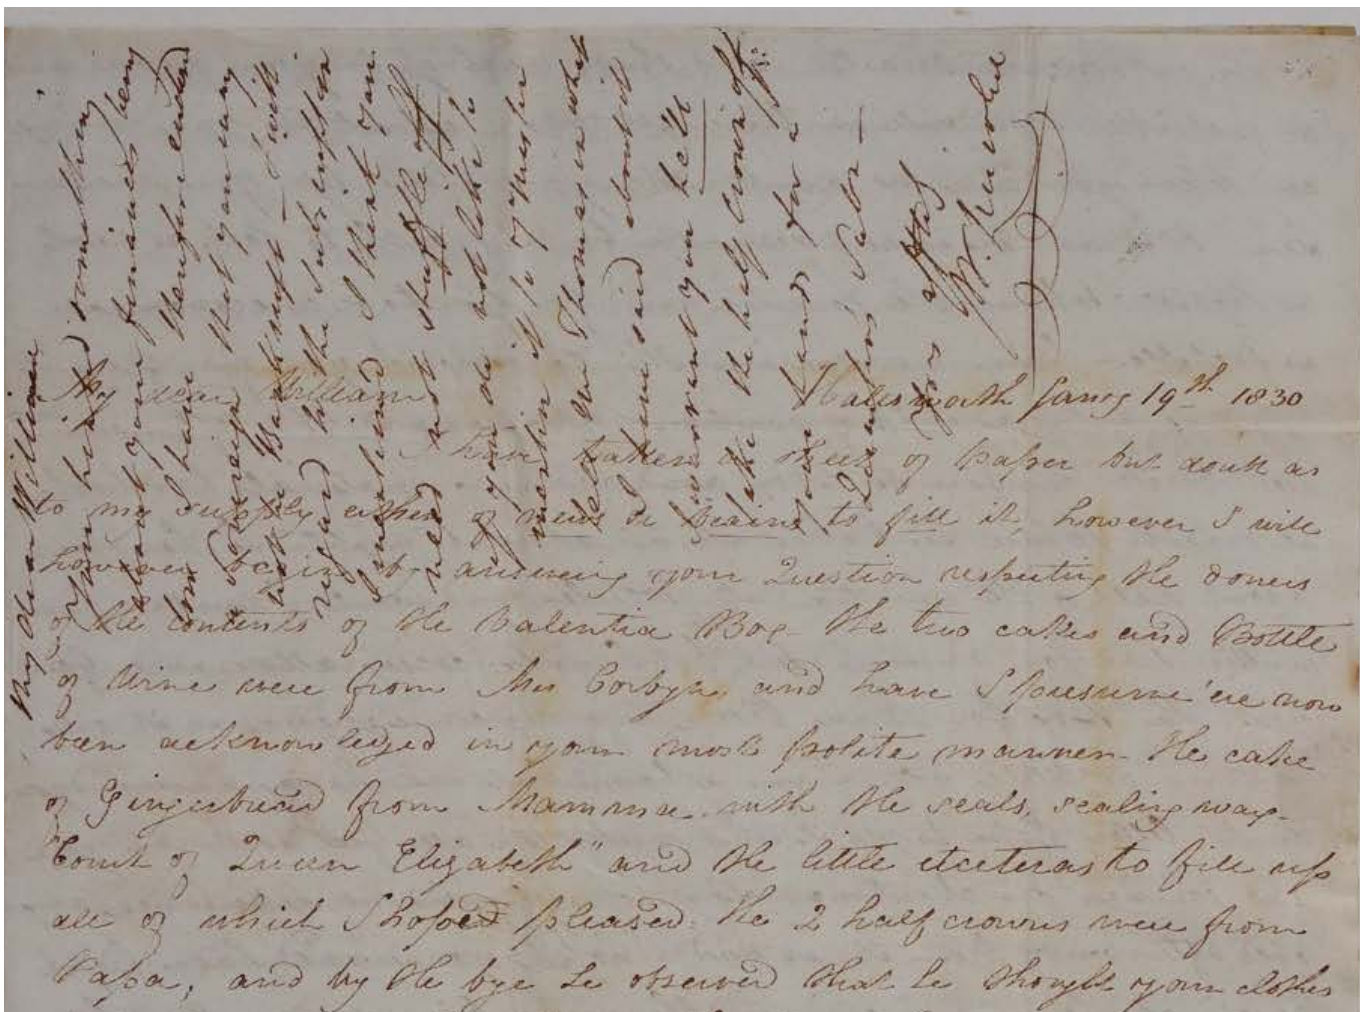 My dear William
Halesworth Jany 19th 1830
I have taken a sheet of paper but doubt as
to my supply either of news or brains to fill it, however I will
however begin by answering your Question respecting the donors
of the contents of the Valentia Box. the two cakes and Bottle
of Wine were from Mrs Corbyn and have I presume 'ere now
been acknowledged in your most polite manner. the cake
of Gingerbread from Mamma with the seals, sealing wax.
"Court of Queen Elizabeth" and the little etceteras to fill up
all of which I hoped pleased. the 2 half crowns were from
Papa, and by the bye he observed that he thought your clothes
My dear William
Your hint sometime
about your finances being
low I have therefore
a Sovereign that you may
not be Bankrupt – I with
regard to the Subscription
I understand I think you
need not shuffle off
if you do not like to
mention it to Master
tell Mr Thomas in what
I have said about it
warrant your
take the half Crown off
your hands for a
Quarters Subn –
yrs affly